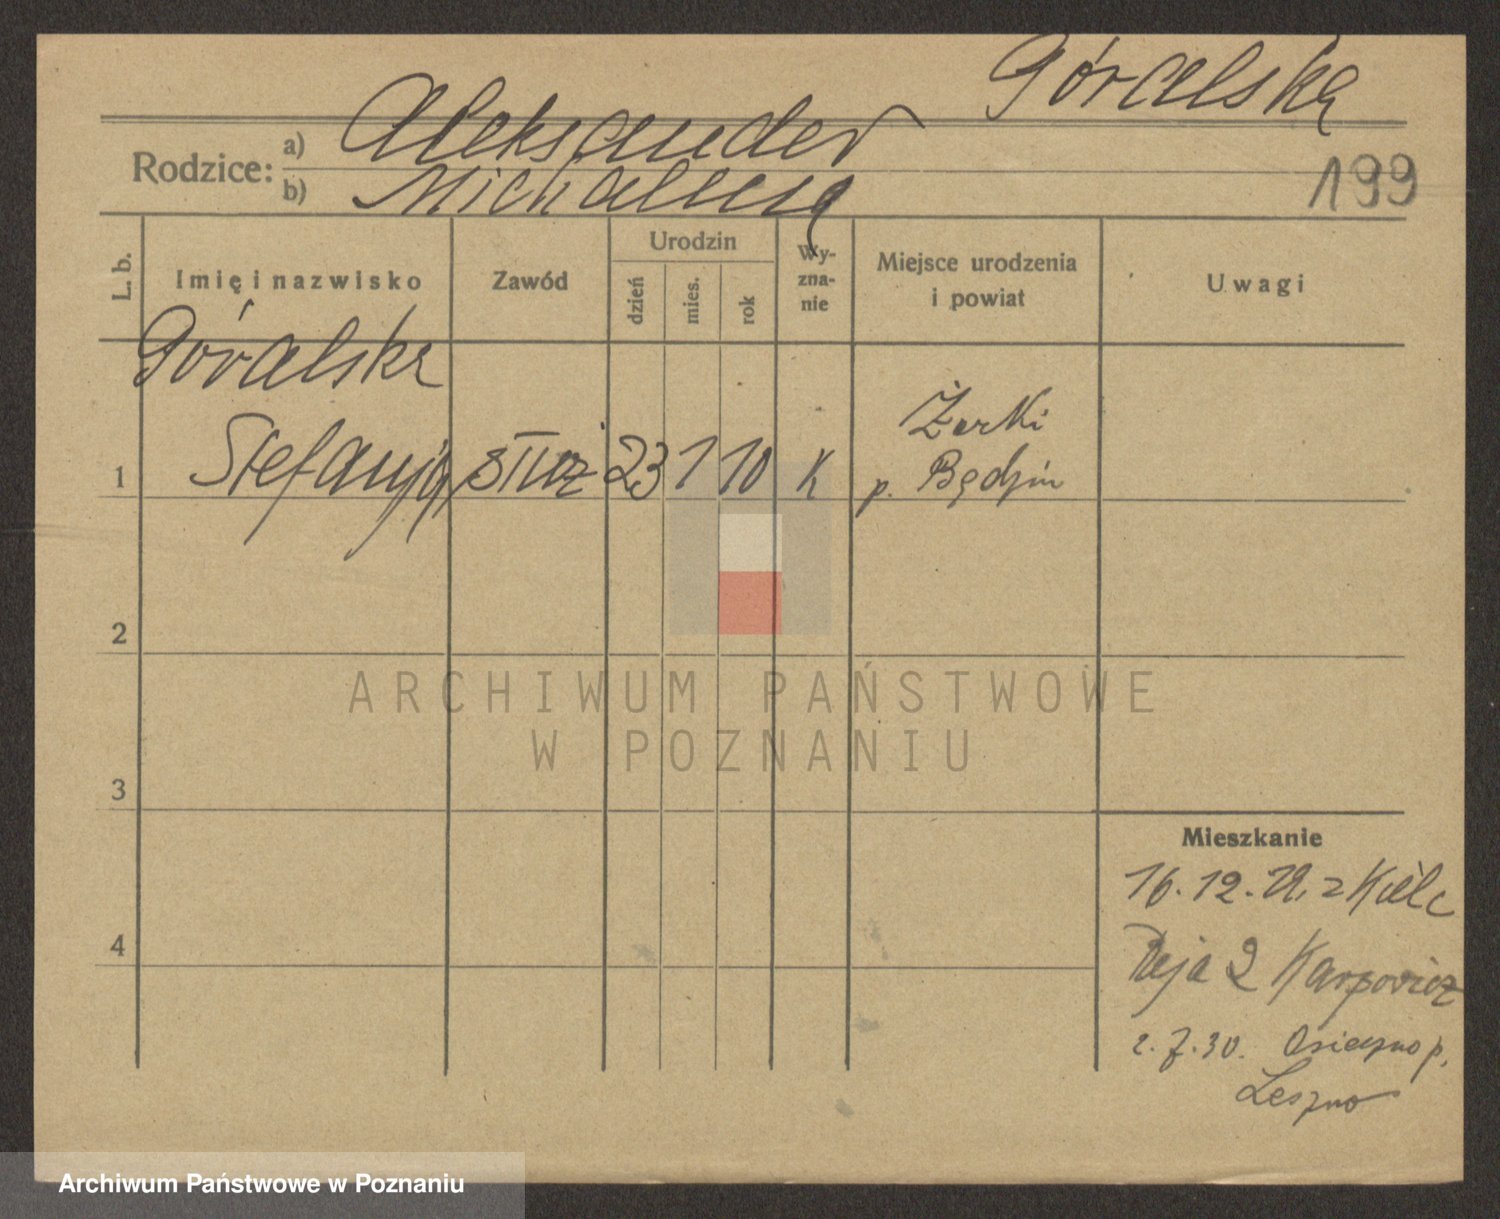 Góralska
Rodzice: a) Aleksander
b) Michalina
199
L. b.
Imię i nazwisko
Zawód
Urodzin
dzień
mies.
rok
Wy-
zna-
nie
Miejsce urodzenia
i powiat
Uwagi
Góralska
1 Stefanja służ 23 1 10 K Żarki
p. Będzin
2
3
4
Mieszkanie
16.12.29. z Kielc
Reja 2 Karpowicz
2.7.30. Osieczno p.
Leszno
ARCHIWUM PAŃSTWOWE
W POZNANIU
Archiwum Państwowe w Poznaniu